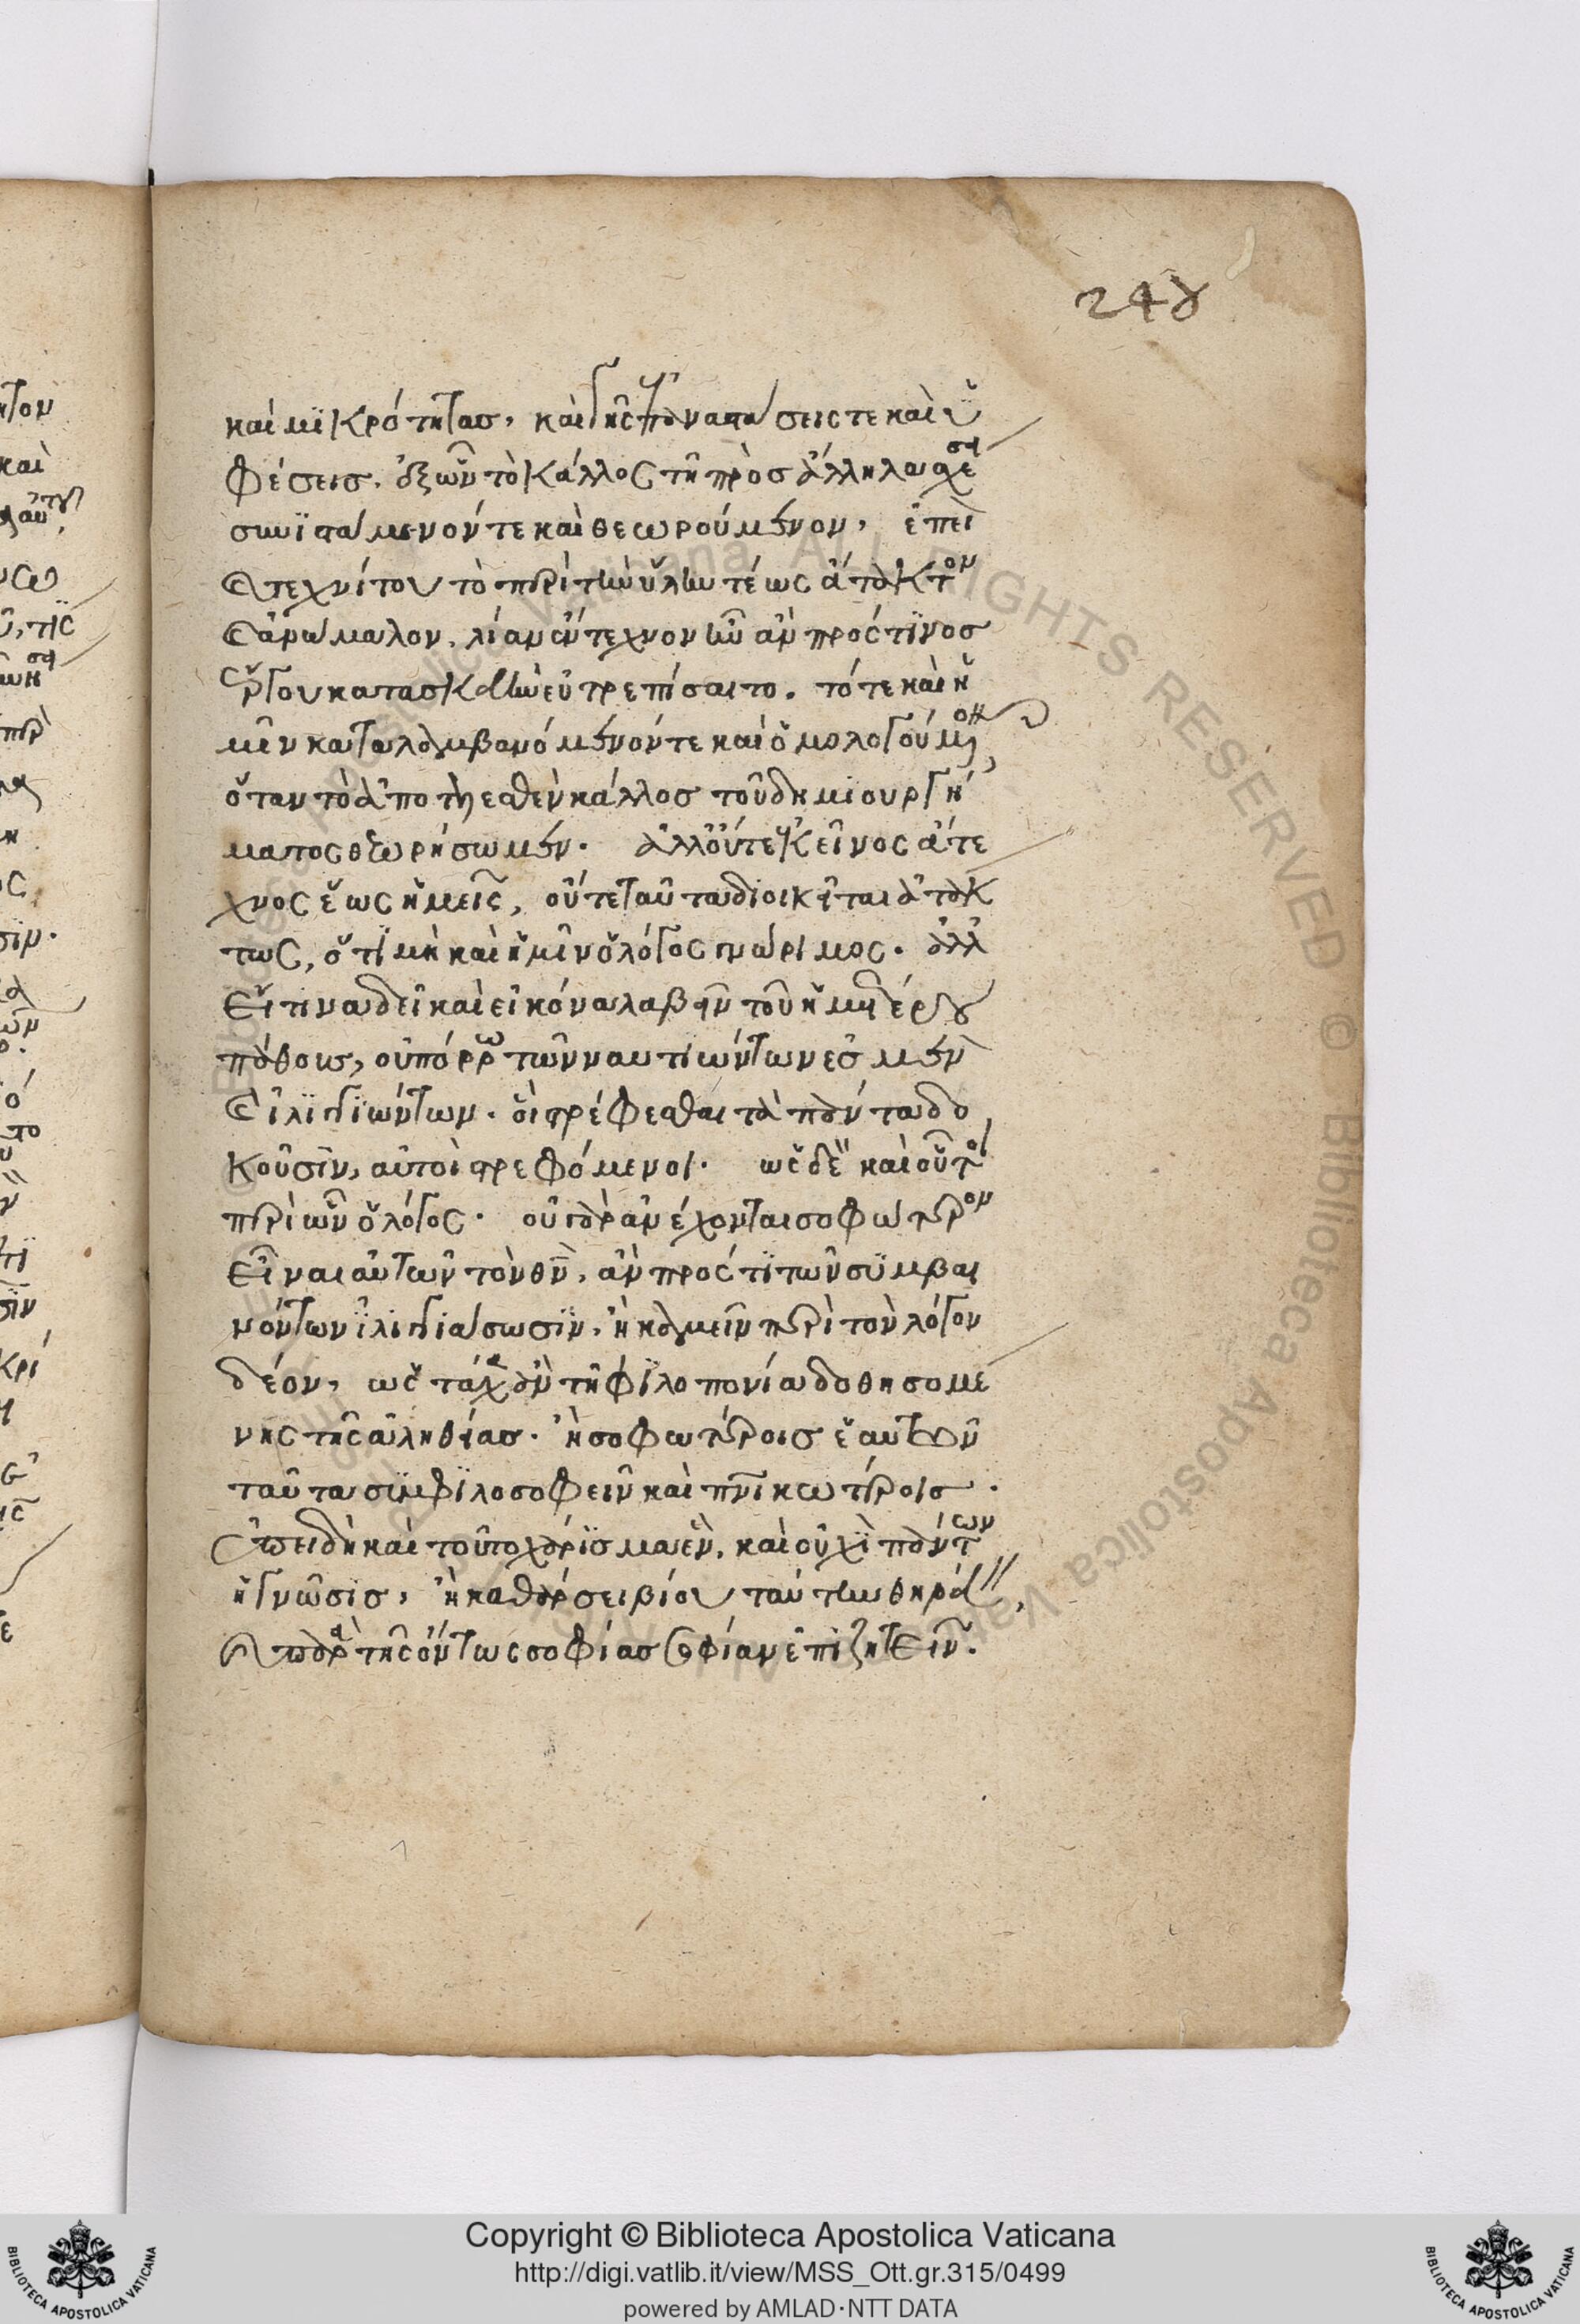 248
καὶ μικρότητας, καὶ τὰς ἐπαναστάσεις τε καὶ ὑ
φέσεις, ἐξ ὧν τὸ κάλλος τῇ πρὸς ἄλληλα σχέσει
συνιστάμενόν τε καὶ θεωρούμενον, ἐπεὶ
καὶ τεχνίτου τὸ περὶ τὴν ὕλην τέως ἄτακτον
καὶ ἀνώμαλον, λίαν ἔντεχνον ἦν ἂν πρός τινος
ἔργου κατασκευὴν εὐτρεπίσαιτο. τότε καὶ ἡ
μῖν καταλαμβανόμενόν τε καὶ ὁμολογούμενον,
ὅταν τὸ ἀποτεθὲν κάλλος τοῦ δημιουργή
ματος θεωρήσωμεν. ἀλλ' οὔτε κεῖνος ἄτε
χνος ἕως ἡμεῖς, οὔτε ταῦτα διοικεῖται ἀτάκ
τως, ὅτι μὴ καὶ ἡμῖν ὁ λόγος γνώριμος. ἀλλ'
εἴ τινα δεῖ καὶ εἰκόνα λαβεῖν τοῦ ἡμετέρου
πάθους, οὐ πόρρω τῶν ναυτιώντων ἐσμὲν
καὶ ἰλιγγιώντων. οἳ στρέφεσθαι τὰ πάντα δο
κοῦσιν, αὐτοὶ στρεφόμενοι. ὡς δὲ καὶ οὗτοι
περὶ ὧν ὁ λόγος. οὐ γὰρ ἀνέχονται σοφώτερον
εἶναι αὐτῶν τὸν θν, ἂν πρός τι τῶν συμβαι
νόντων ἰλιγγιάσωσιν, ἢ κάμνειν περὶ τὸν λόγον
δέον, ὡς τάχα ἂν τῇ φιλοπονίᾳ δοθησομέ
νης τῆς ἀληθείας. ἢ σοφωτέροις ἑαυτῶν
ταῦτα συμφιλοσοφεῖν καὶ πνικωτέροις.
ἐπειδὴ καὶ τοῦτο χάρισμα ἓν, καὶ οὐχὶ πάντων
ἡ γνῶσις, ἢ καθάρσει βίου ταύτην θηρᾶν,
καὶ παρὰ τῆς ὄντως σοφίας σοφίαν ἐπιζητεῖν.
Copyright © Biblioteca Apostolica Vaticana
http://digi.vatlib.it/view/MSS_Ott.gr.315/0499
powered by AMLAD·NTT DATA